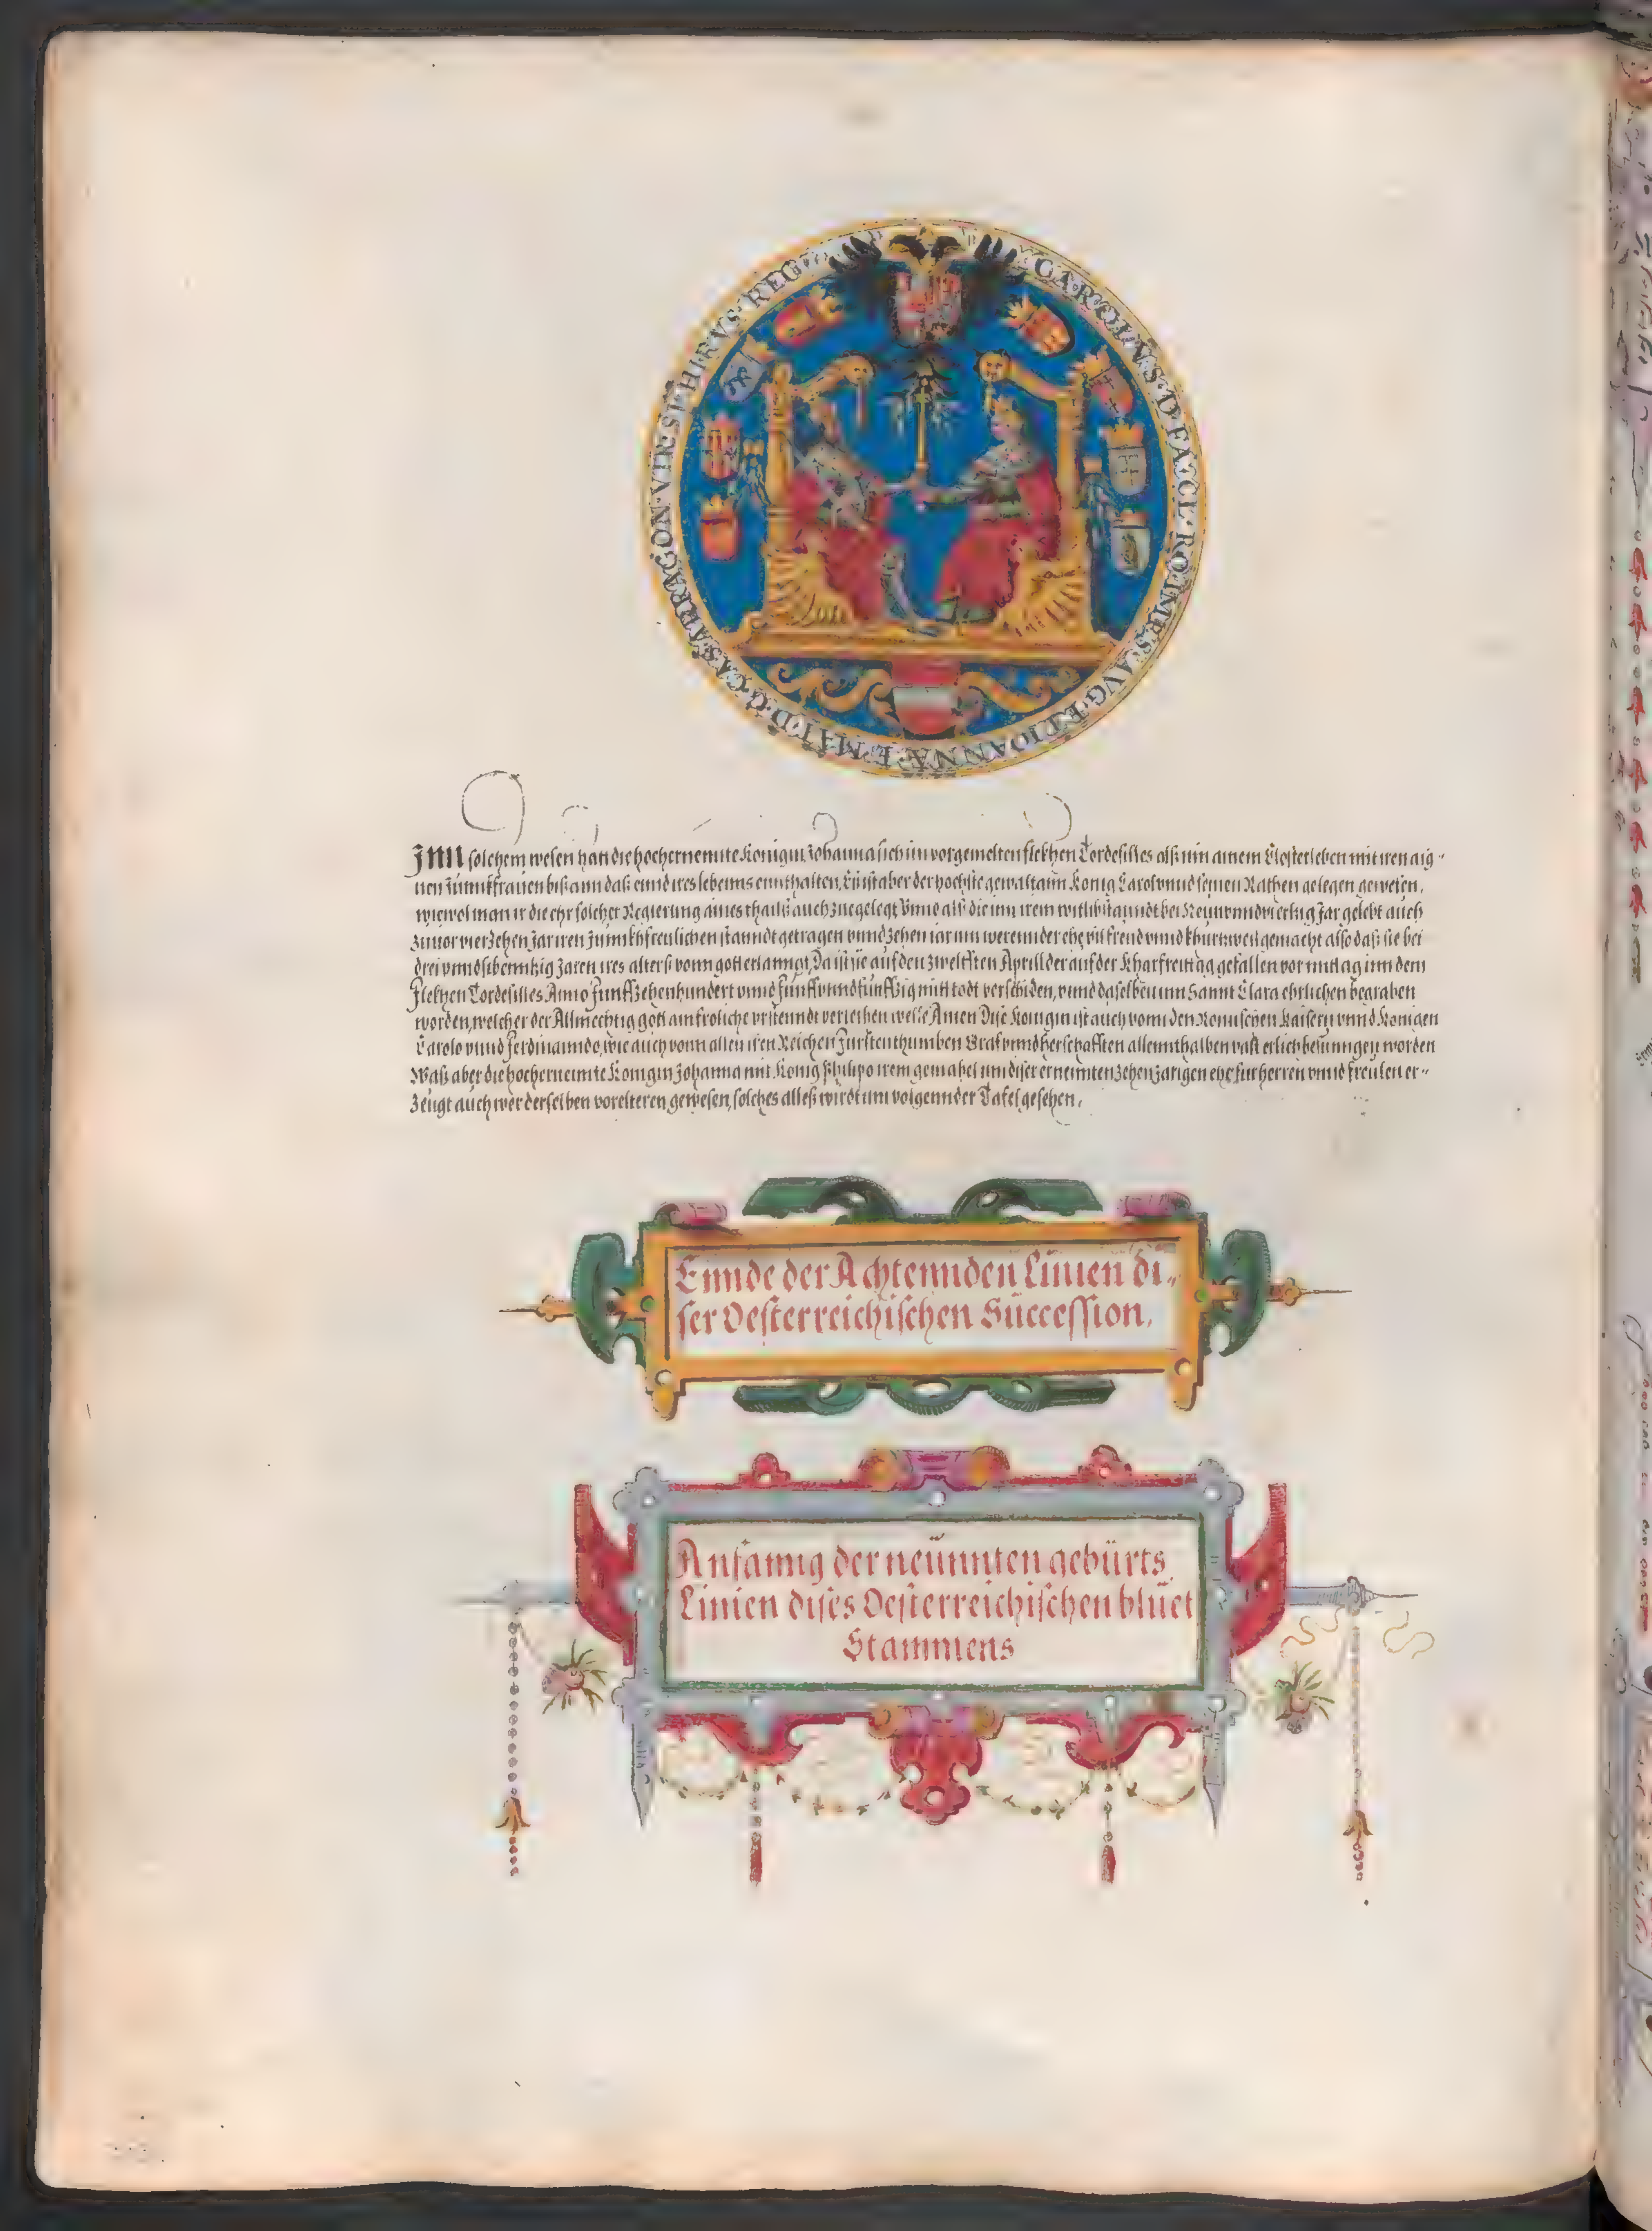 CAROLVS·D·FA·CL·RO·IMP·S·AVG·ET·IOANNÆ·E·MAT·D·G·CAS·ARRAGON·VTR·SI·HIRVS·REG
Inn solchem wesen hatt die hochernennte Konigin Johanna sich im vorgemelten flekhen Tordesilles als inn ainem Closterleben mit iren aig-
nen Junnkfrauen biß ann daß ennd ires lebenns ennthalten, Es ist aber der hochste gewalt ann Konig Carol vnnd seinen Rathen gelegen gewesen,
wiewol man ir die ehr solcher Regierung aines thailß auch zuegelegt Vnnd alß die inn irem witlib stanndt bei Neun vnnd vierzig Jar gelebt auch
zuuor vierzehen Jar iren Junnkhfreulichen stanndt getragen vnnd zehen iar inn werennder ehe vil freud vnnd khurtzweil gemacht also daß sie bei
drei vnnd sibenntzig Jaren ires alters vonn gott erlanngt, Da ist sie auf den zwelfften Aprill der auf der Kharfreittag gefallen vor mittag inn dem
flekhen Tordesilles Anno Funffzehenhundert vnnd funff vnnd funffzig mitt todt verschiden, vnnd daselben inn Sannt Clara ehrlichen begraben
worden, welcher der Allmechtig gott ain froliche vrstenndt verleihen welle Amen Dise Konigin ist auch vonn den Romischen Kaisern vnnd Konigen
Carolo vnnd Ferdinanndo, wie auch vonn allen iren Reichen Furstenthumben Graf vnnd herschafften allennthalben vast erlich besunngen worden
Waß aber die hochernennte Konigin Johanna mit Konig Philipo irem gemahel inn diser ernennten zehen Jarigen ehe fur herren vnnd freulen er-
zeugt auch wer derselben vorelteren gewesen, solches alleß wirdt inn volgennder Tafel gesehen.
Ennde der Achtennden Linien di-
ser Oesterreichischen Succession.
Anfanng der neünnten gebürts
Linien dises Oesterreichischen blüet
Stammens